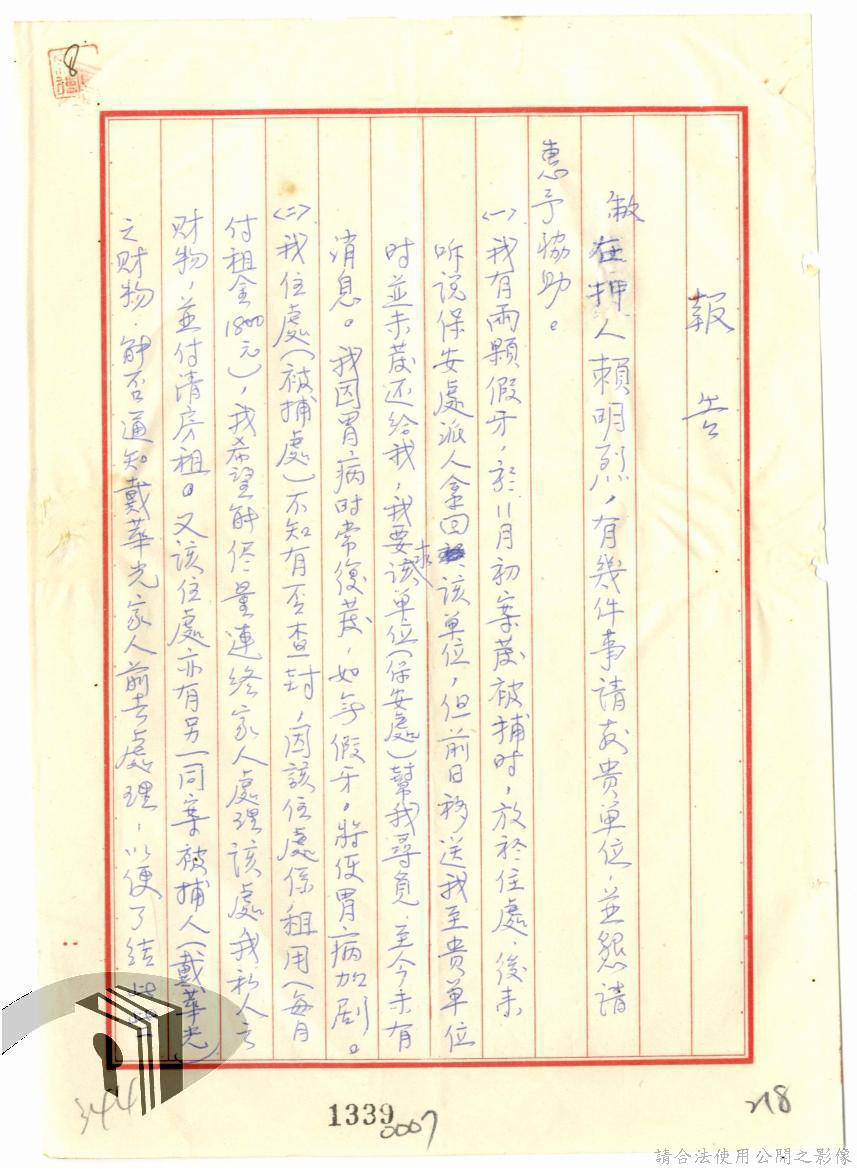 報告
敝在押人賴明烈，有幾件事請求貴單位，並懇請
惠予協助。
㈠我有兩顆假牙，於11月初案发被捕时，放於住處，後来
听説保安處派人拿回該單位，但前日移送我至貴單位
时並未发还给我，我要求該單位（保安處）幫我尋覓，至今未有
消息。我因胃病时常復发，如無假牙。將使胃病加剧。
㈡我住處（被捕處）不知有否查封，因該住處係租用（每月
付租金1800元），我希望能侭量連络家人處理該處我私人之
财物，並付清房租。又該住處亦有另一同案被捕人（戴華光）
之财物，能否通知戴華光家人前去處理，以便了结
8
344
1339
0007
218
請合法使用公開之影像